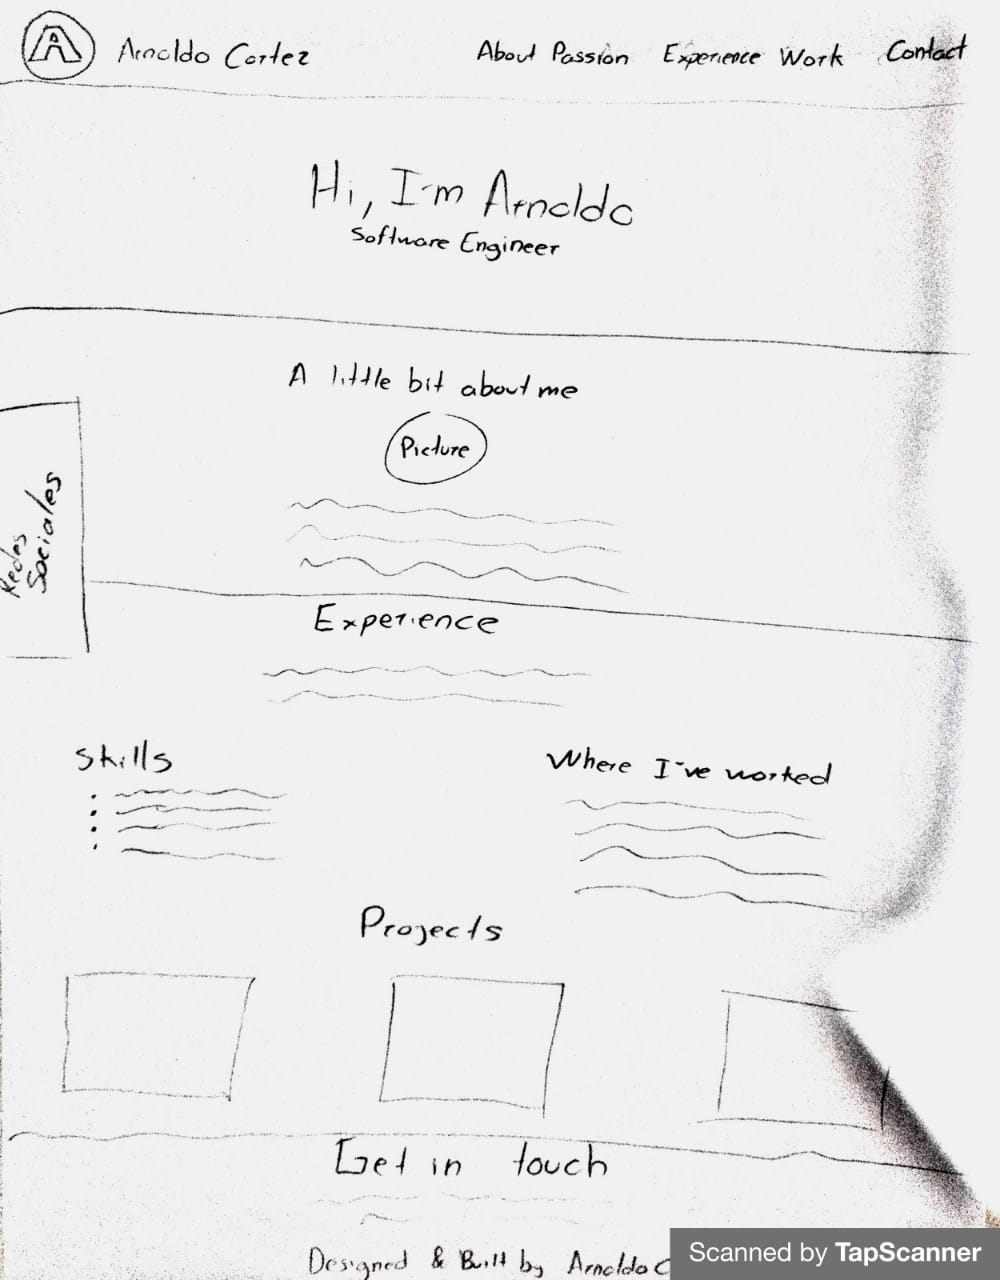 A Arnaldo Cortez About Passion Experience Work Contact
Hi, I'm Arnaldo
Software Engineer
A little bit about me
Picture
Redes
Sociales
Experience
Skills
Where I've worked
Projects
Get in touch
Designed & Built by Arnaldo C
Scanned by TapScanner